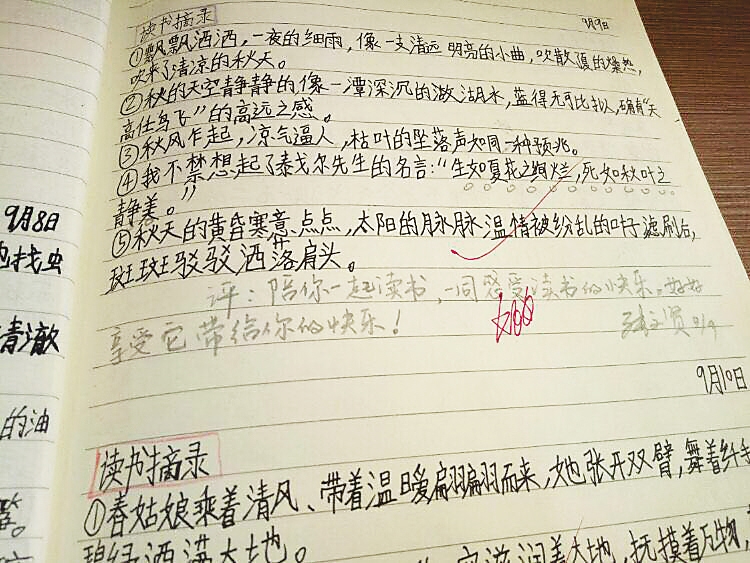 读书摘录
9月9日
①飘飘洒洒，一夜的细雨，像一支清远明亮的小曲，吹散夏的燥热，
吹来了清凉的秋天。
②秋的天空静静的，像一潭深沉的激湖水，蓝得无可比拟，确有“天
高任鸟飞”的高远之感。
③秋风乍起，凉气逼人，枯叶的坠落声如同一种预兆。
④我不禁想起了泰戈尔先生的名言：“生如夏花之绚烂，死如秋叶之
静美。”
⑤秋天的黄昏寒意点点，太阳的脉脉温情被纷乱的叶子滤刷后，
斑斑驳驳洒落肩头。
评：陪你一起读书，一同感受读书的快乐。好好
享受它带给你的快乐！
9/9
9月10日
读书摘录
①春姑娘乘着清风、带着温暖翩翩而来，她张开双臂，舞着纤手
碧绿洒满大地。
滋润着大地，抚摸着万物，
9月8日
地找虫
青澈
的油